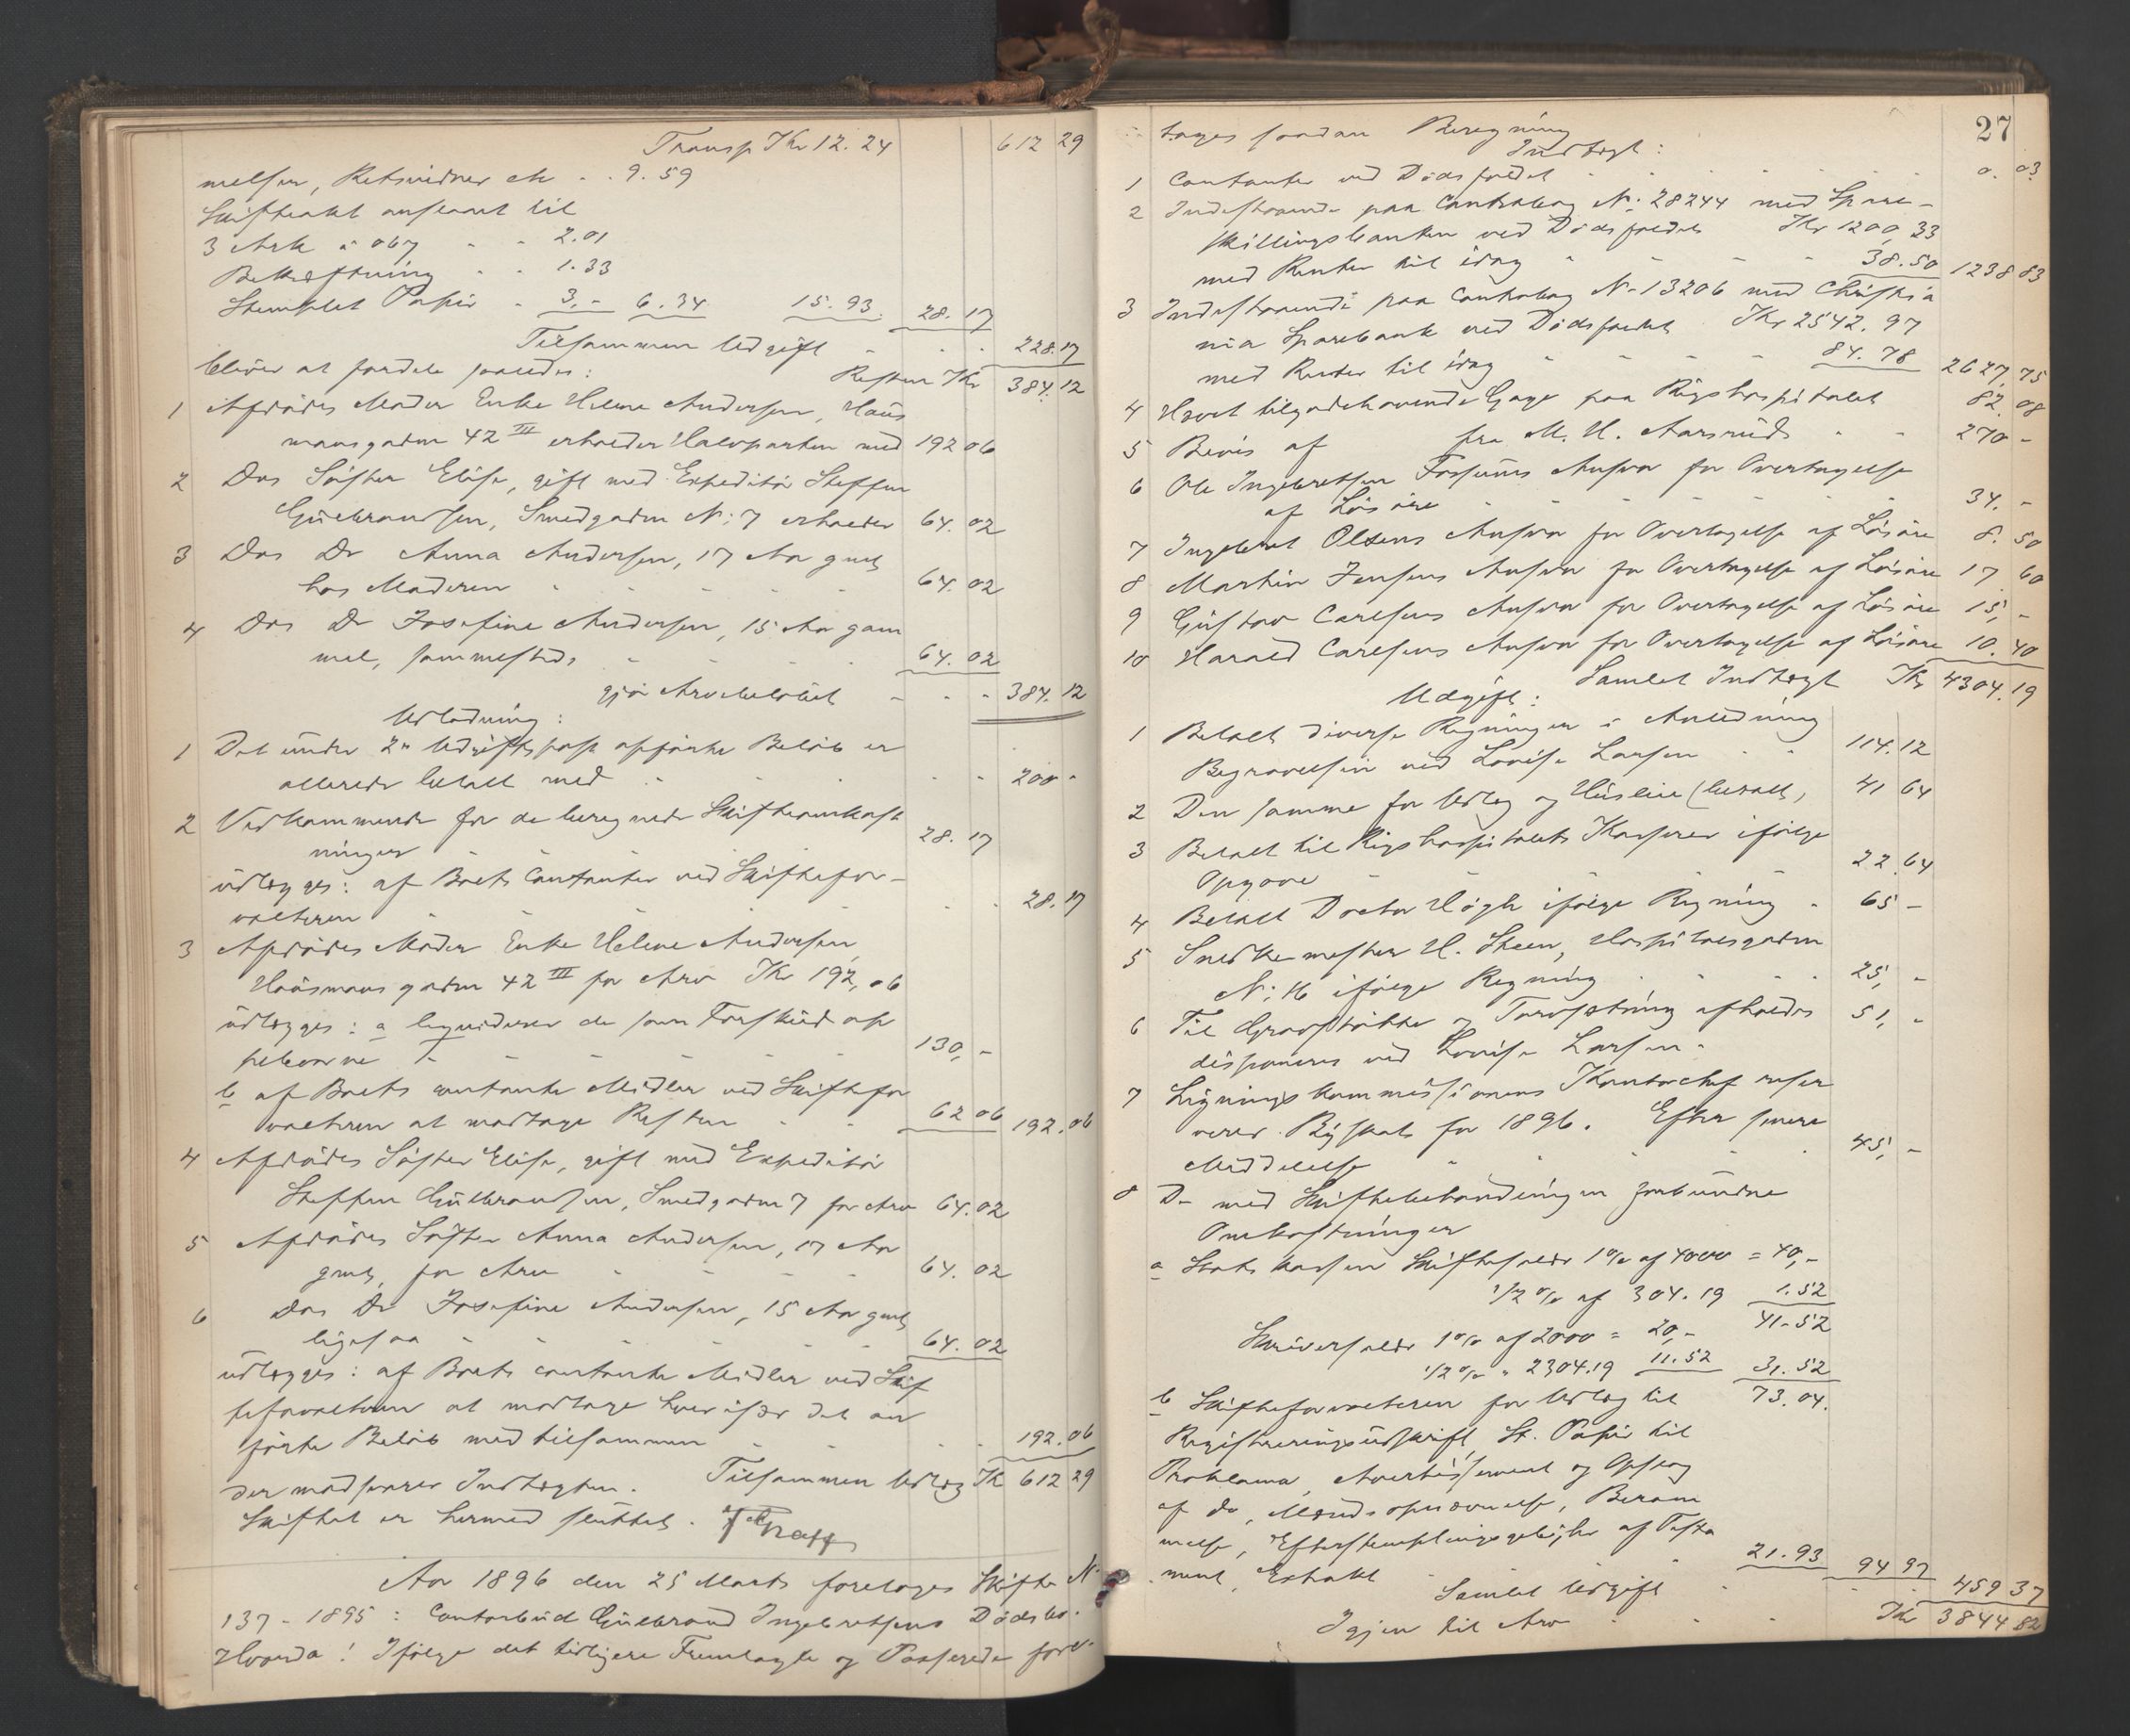 Transp Kr 12.24 612 29
melsen, Retsvidner etc - . 9.59
Skifteakt anslaaet til
3 Ark a 067 - - 2.01
Bekræftning - - 1.33
Stemplet Papir - 3,- 6.34 15.93 28.17
Tilsammen Udgift - - - 228.17
bliver at fordele saaledes: Resten Kr 384.12
1 Afdødes Moder Enke Helene Andersen, Haus
mansgaden 42 III erholder Halvparten med 192 06
2 Dos Søster Elise, gift med Expeditør Steffen
Gulbrandsen, Smedgaden N: 7 erholder 64.02
3 Dos Do Anna Andersen, 17 Aar gml
hos Moderen - - - - - 64.02
4 Dos Do Josefine Andersen, 15 Aar gam
mel, sammesteds - - - - 64.02
gjør Arvebeløbet - - - 384.12
Udlodning:
1 Det under 2n Udgiftspost opførte Beløb er
allerede betalt med - - - - 200 -
2 Vedkommende for de beregnede Skifteomkost
ninger - - - - 28.17
udlægges: af Boets Contanter ved Skiftefor-
valteren - - - - - - 28.17
3 Afdødes Moder Enke Helene Andersen
Hausmans gaden 42 III for Arv Kr 192,06
udlægges: a liquiderer de som Forskud op
pebaarne - - - - - 130,-
b af Boets contante Midler ved Skiftefor
valteren at modtage Resten - - 62 06 192.06
4 Afdødes Søster Elise, gift med Expeditør
Steffen Gulbrandsen, Smedgaden 7 for Arv 64.02
5 Afdødes Søster Anna Andersen, 17 Aar
gml, for Arv - - - - 64.02
6 Dos Do Josefine Andersen, 15 Aar gml
ligesaa - - - - - 64.02
udlægges: af Boets contante Midler ved Skif
teforvalteren at modtage hver især det an
førte Beløb med tilsammen - - - - 192.06
der modsvarer Indtægten. Tilsammen Udlæg Kr 612 29
Skiftet er hermed sluttet.
Aar 1896 den 25 Marts foretoges Skifte N.
137 - 1895: Contorbud Gulbrand Ingebretsens Dødsbo.
Hvorda! Ifølge det tidligere Fremlagte og Passerede fore-
27
tages saadan Beregning
Indtægt:
1 Contanter ved Dødsfaldet - - - - - 0. 03
2 Indestaaende paa Contrabog N: 28244 med Spare-
skillingsbanken ved Dødsfaldet Kr 1200,33
med Renter til idag - - - - 38.50 1238 83
3 Indestaaende paa Contrabog N- 13206 med Christia
nia Sparebank ved Dødsfaldet Kr 2542.97
med Renter til idag - - - - 84.78 2627,75
4 Havet tilgodehavende Gage paa Rigshospitalet 82.08
5 Bevis af fra M. H. Aarsruds - - 270 -
6 Ole Ingebretsen Fossums Ansvar for Overtagelse
af Løsøre - - - - - - - 34. -
7 Ingebret Olsens Ansvar for Overtagelse af Løsøre 8. 50
8 Martin Jensens Ansvar for Overtagelse af Løsøre 17 60
9 Gustav Carlsens Ansvar for Overtagelse af Løsøre 15,-
10 Harald Carlsens Ansvar for Overtagelse af Løsøre 10.40
Samlet Indtægt Kr 4304.19
Udgift:
1 Betalt diverse Regninger i Anledning
Begravelsen ved Lovise Larsen - - 114.12
2 Den samme for Udlæg og Husleie (betalt) 41 64
3 Betalt til Rigshospitalets Kasserer ifølge
Opgave - - - - - 22.64
4 Betalt Doctor Høgh ifølge Regning - 65 -
5 Snedkermester H. Steen, Hospitalsgaden
N: 16 ifølge Regning - - - - 25, -
6 Til Gravstøtte og Torvsætning afholdes 51, -
disponeres ved Lovise Larsen -
7 Ligningskommissionens Kontorchef reser
veres Byskat for 1896. Efter senere
Meddelelse - - - - - 45, -
8 De med Skiftebehandlingen forbundne
Omkostninger
a Statskassen Skifteafgift 1% af 4000 = 40,-
1/2 % af 304.19 1.52
41.52
Skriversalær 1% af 2000 = 20,-
1/2 % - 2304.19 11.52 31.52
b Skifteforvalteren for Udlæg til 73.04.
Registreringsudskrift, St. Papir til
Proklama, Avertissement og Opslag
af do, Mændsopnævnelse, Beram
melse, Efterstemplingsgebyhr af Testa
ment, Extrakt - 21.93 94 97
Samlet Udgift - - - 459 37
Igjen til Arv - - - Kr 3844 82